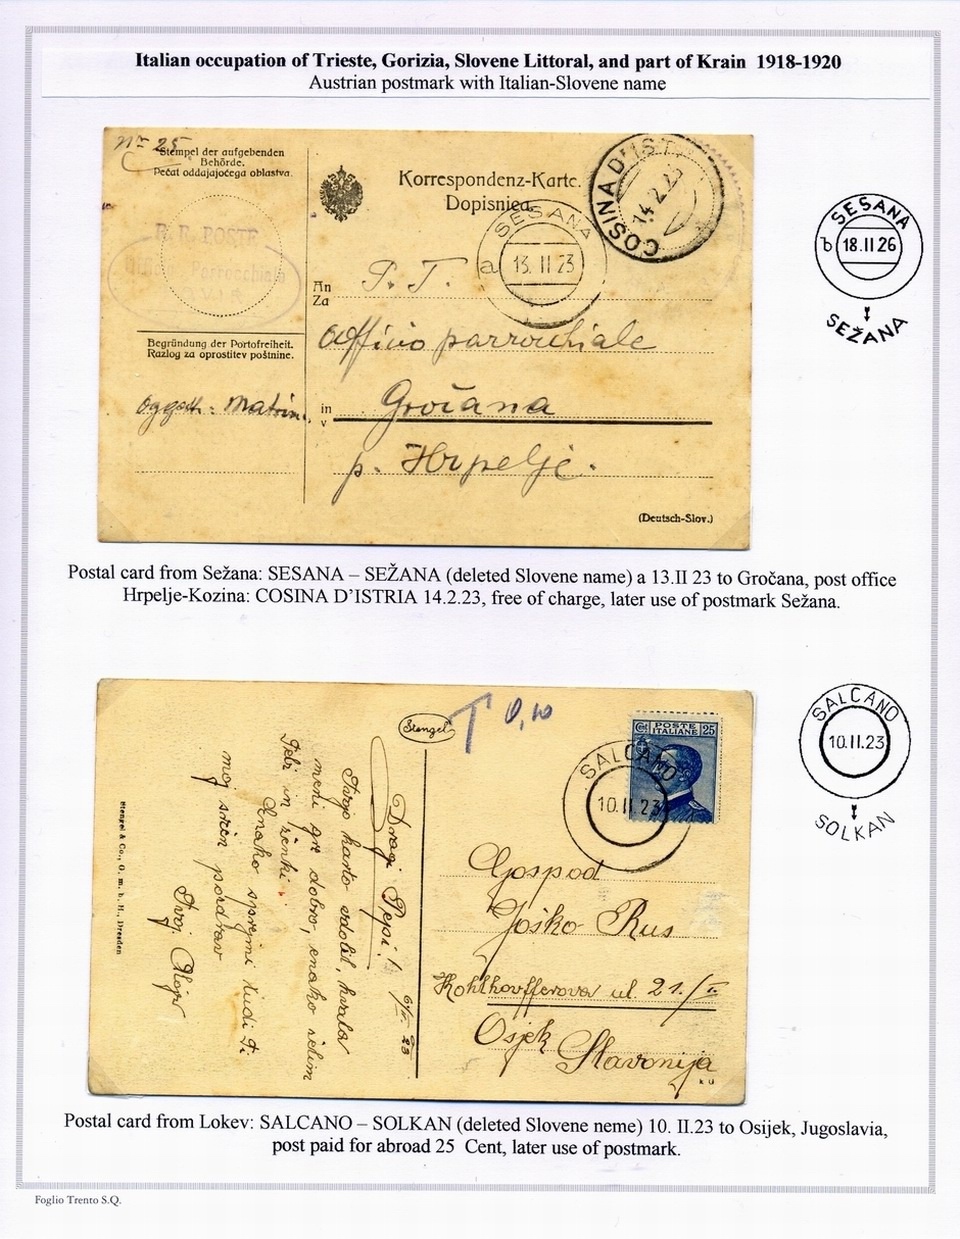 Italian occupation of Trieste, Gorizia, Slovene Littoral, and part of Krain 1918-1920
Austrian postmark with Italian-Slovene name
Nr 25
Stempel der aufgebenden
Behörde.
Pečat oddajajočega oblastva.
R. R. POSTE
Parrocchiale
Korrespondenz-Karte.
Dopisnica.
COSINA D'IST
14.2.23
SESANA
a 13.II 23
An
Za
P. T.
Officio parrochiale
Begründung der Portofreiheit.
Razlog za oprostitev poštnine.
in
v
Gročana
p. Hrpelje.
(Deutsch-Slov.)
SESANA
b 18.II 26
SEŽANA
Postal card from Sežana: SESANA – SEŽANA (deleted Slovene name) a 13.II 23 to Gročana, post office
Hrpelje-Kozina: COSINA D'ISTRIA 14.2.23, free of charge, later use of postmark Sežana.
Stengel
T 0,10
Ct POSTE ITALIANE 25
SALCANO
10.II.23
Gospod
Joško Rus
ul. 21./II
Osjek
Slavonija
Dragi Pepi!
6/II. 23
Tvojo karto dobil, hvala
meni gre dobro, enako želim
Tebi in ženki.
Enako sprejmi tudi Ti
moj srčen pozdrav
Tvoj Alojz
Stengel & Co., G. m. b. H., Dresden
SALCANO
10.II.23
SOLKAN
Postal card from Lokev: SALCANO – SOLKAN (deleted Slovene neme) 10. II.23 to Osijek, Jugoslavia,
post paid for abroad 25 Cent, later use of postmark.
Foglio Trento S.Q.